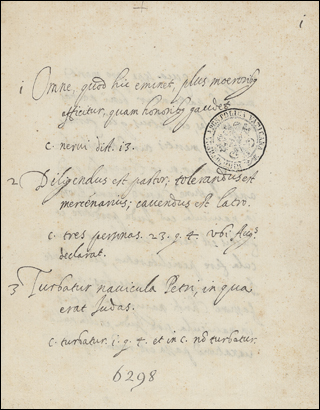 1
1 Omne, quod hic eminet, plus moeroribg
efficitur, quam honoribg gaudet.
c. nervi dist. 13.
2 Diligendus est pastor; tolerandus est
mercenarius; cavendus est latro.
c. tres personas. 23. q. 4. vbi Augs
declarat.
3 Turbatur navicula Petri, in qua
erat Judas.
c. turbatur. 1. q. 4. et in c. nō turbatur.
6298
BIBLIOTHECA APOSTOLICA VATICANA